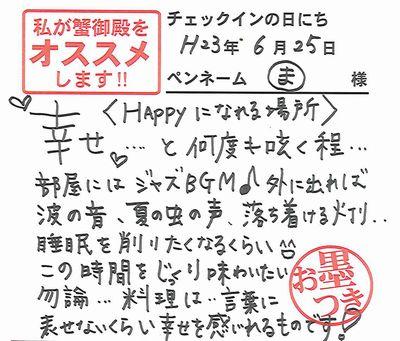 私が蟹御殿を
オススメ
します!!
チェックインの日にち
H23年 6月25日
ペンネーム ま 様
〈HAPPYになれる場所〉
幸せ…と何度も呟く程…
部屋にはジャズBGM♪外に出れば
波の音、夏の虫の声、落ち着ける灯り..
睡眠を削りたくなるくらい
この時間をじっくり味わいたい
勿論…料理は…言葉に
表せないくらい幸せを感じれるものです!
お墨つき